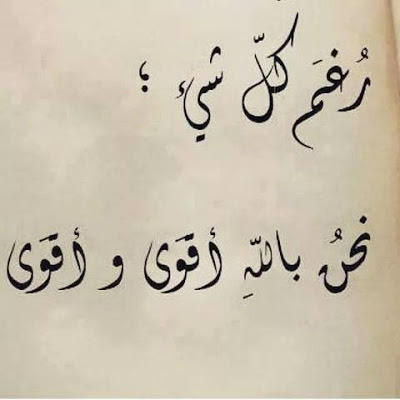 رُغمَ كلّ شيءٍ ؛
نحنُ باللّهِ أقوَى و أقوَى